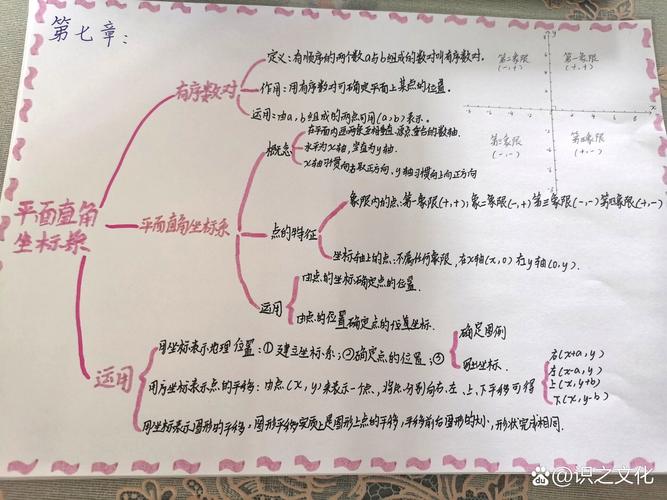 第七章:
平面直角
坐标系
有序数对
定义:有顺序的两个数a与b组成的数对叫有序数对。
作用:用有序数对可确定平面上某点的位置。
运用:由a,b组成的两点可用(a,b)表示。
平面直角坐标系
概念
在平面内画两条互相垂直、原点重合的数轴.
水平为x轴,竖直为y轴.
x轴习惯向右取正方向,y轴习惯向上向正方向
点的特征
象限内的点:第一象限(+,+),第二象限(-,+)第三象限(-,-)第四象限(+,-)
坐标轴上的点:不属任何象限,在x轴(x,0)在y轴(0,y).
运用
由点的坐标确定点的位置.
由点的位置确定点的位置坐标.
运用
用坐标表示地理位置:①建立坐标系;②确定点的位置;③
确定图例
坐标.
用坐标表示点的平移:由点(x,y)来表示一个点,将其分别向右、左、上、下平移可得
右(x+a,y)
左(x-a,y)
上(x,y+b)
下(x,y-b)
用坐标表示图形的平移,图形平移实质上是图形上点的平移,平移前后图形的大小,形状完全相同.
第二象限
(-,+)
第一象限
(+,+)
第三象限
(-,-)
第四象限
(+,-)
y
x
Baidu百科 @识之文化